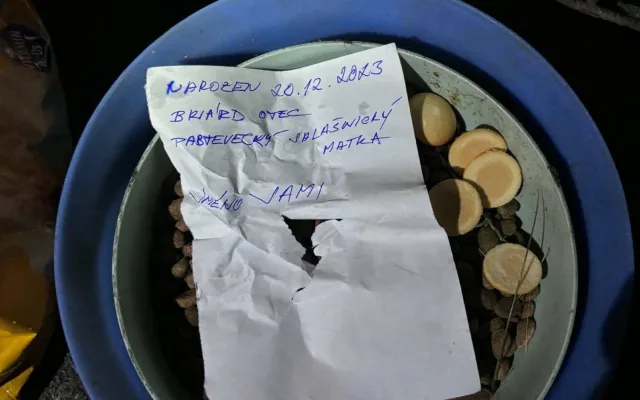 NAROZEN 20.12.2023
BRIARD OTEC
PASTEVECKÝ SALAŠNICKÝ
MATKA
JMÉNO VAMI